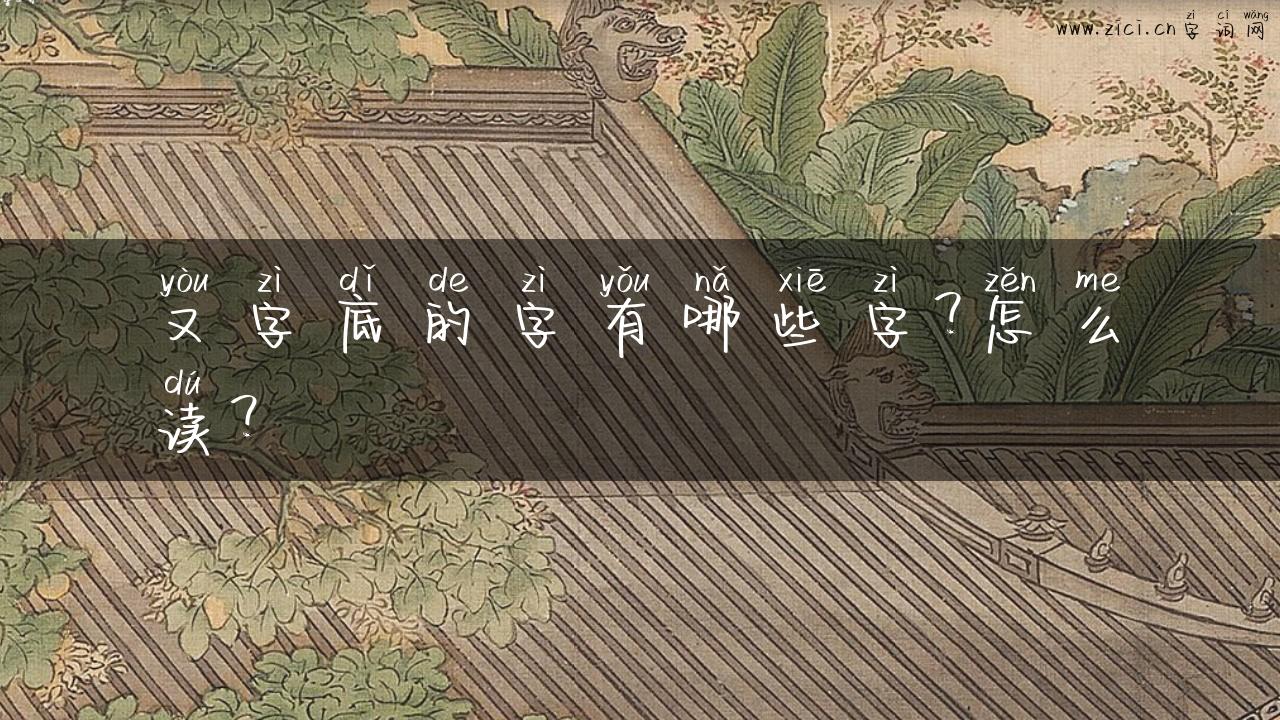 zì cí wǎng
www.zici.cn 字词网
yòu zì dǐ de zì yǒu nǎ xiē zì zěn me
又字底的字有哪些字？怎么
dú
读？